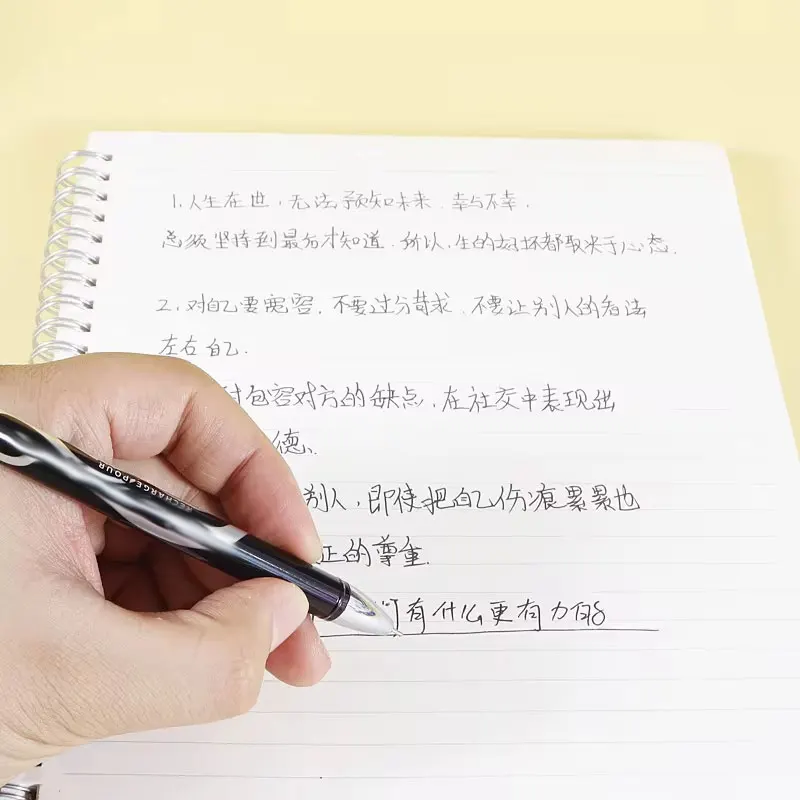 1.人生在世,无法预知未来.幸与不幸,
总须坚持到最后才知道.所以,生的好坏都取决于心态.
2.对自己要宽容.不要过分苛求.不要让别人的看法
左右自己.
包容对方的缺点,在社交中表现出
德、
别人,即使把自己伤痕累累也
正的尊重.
有什么更有力的
RECHARGE&POUR